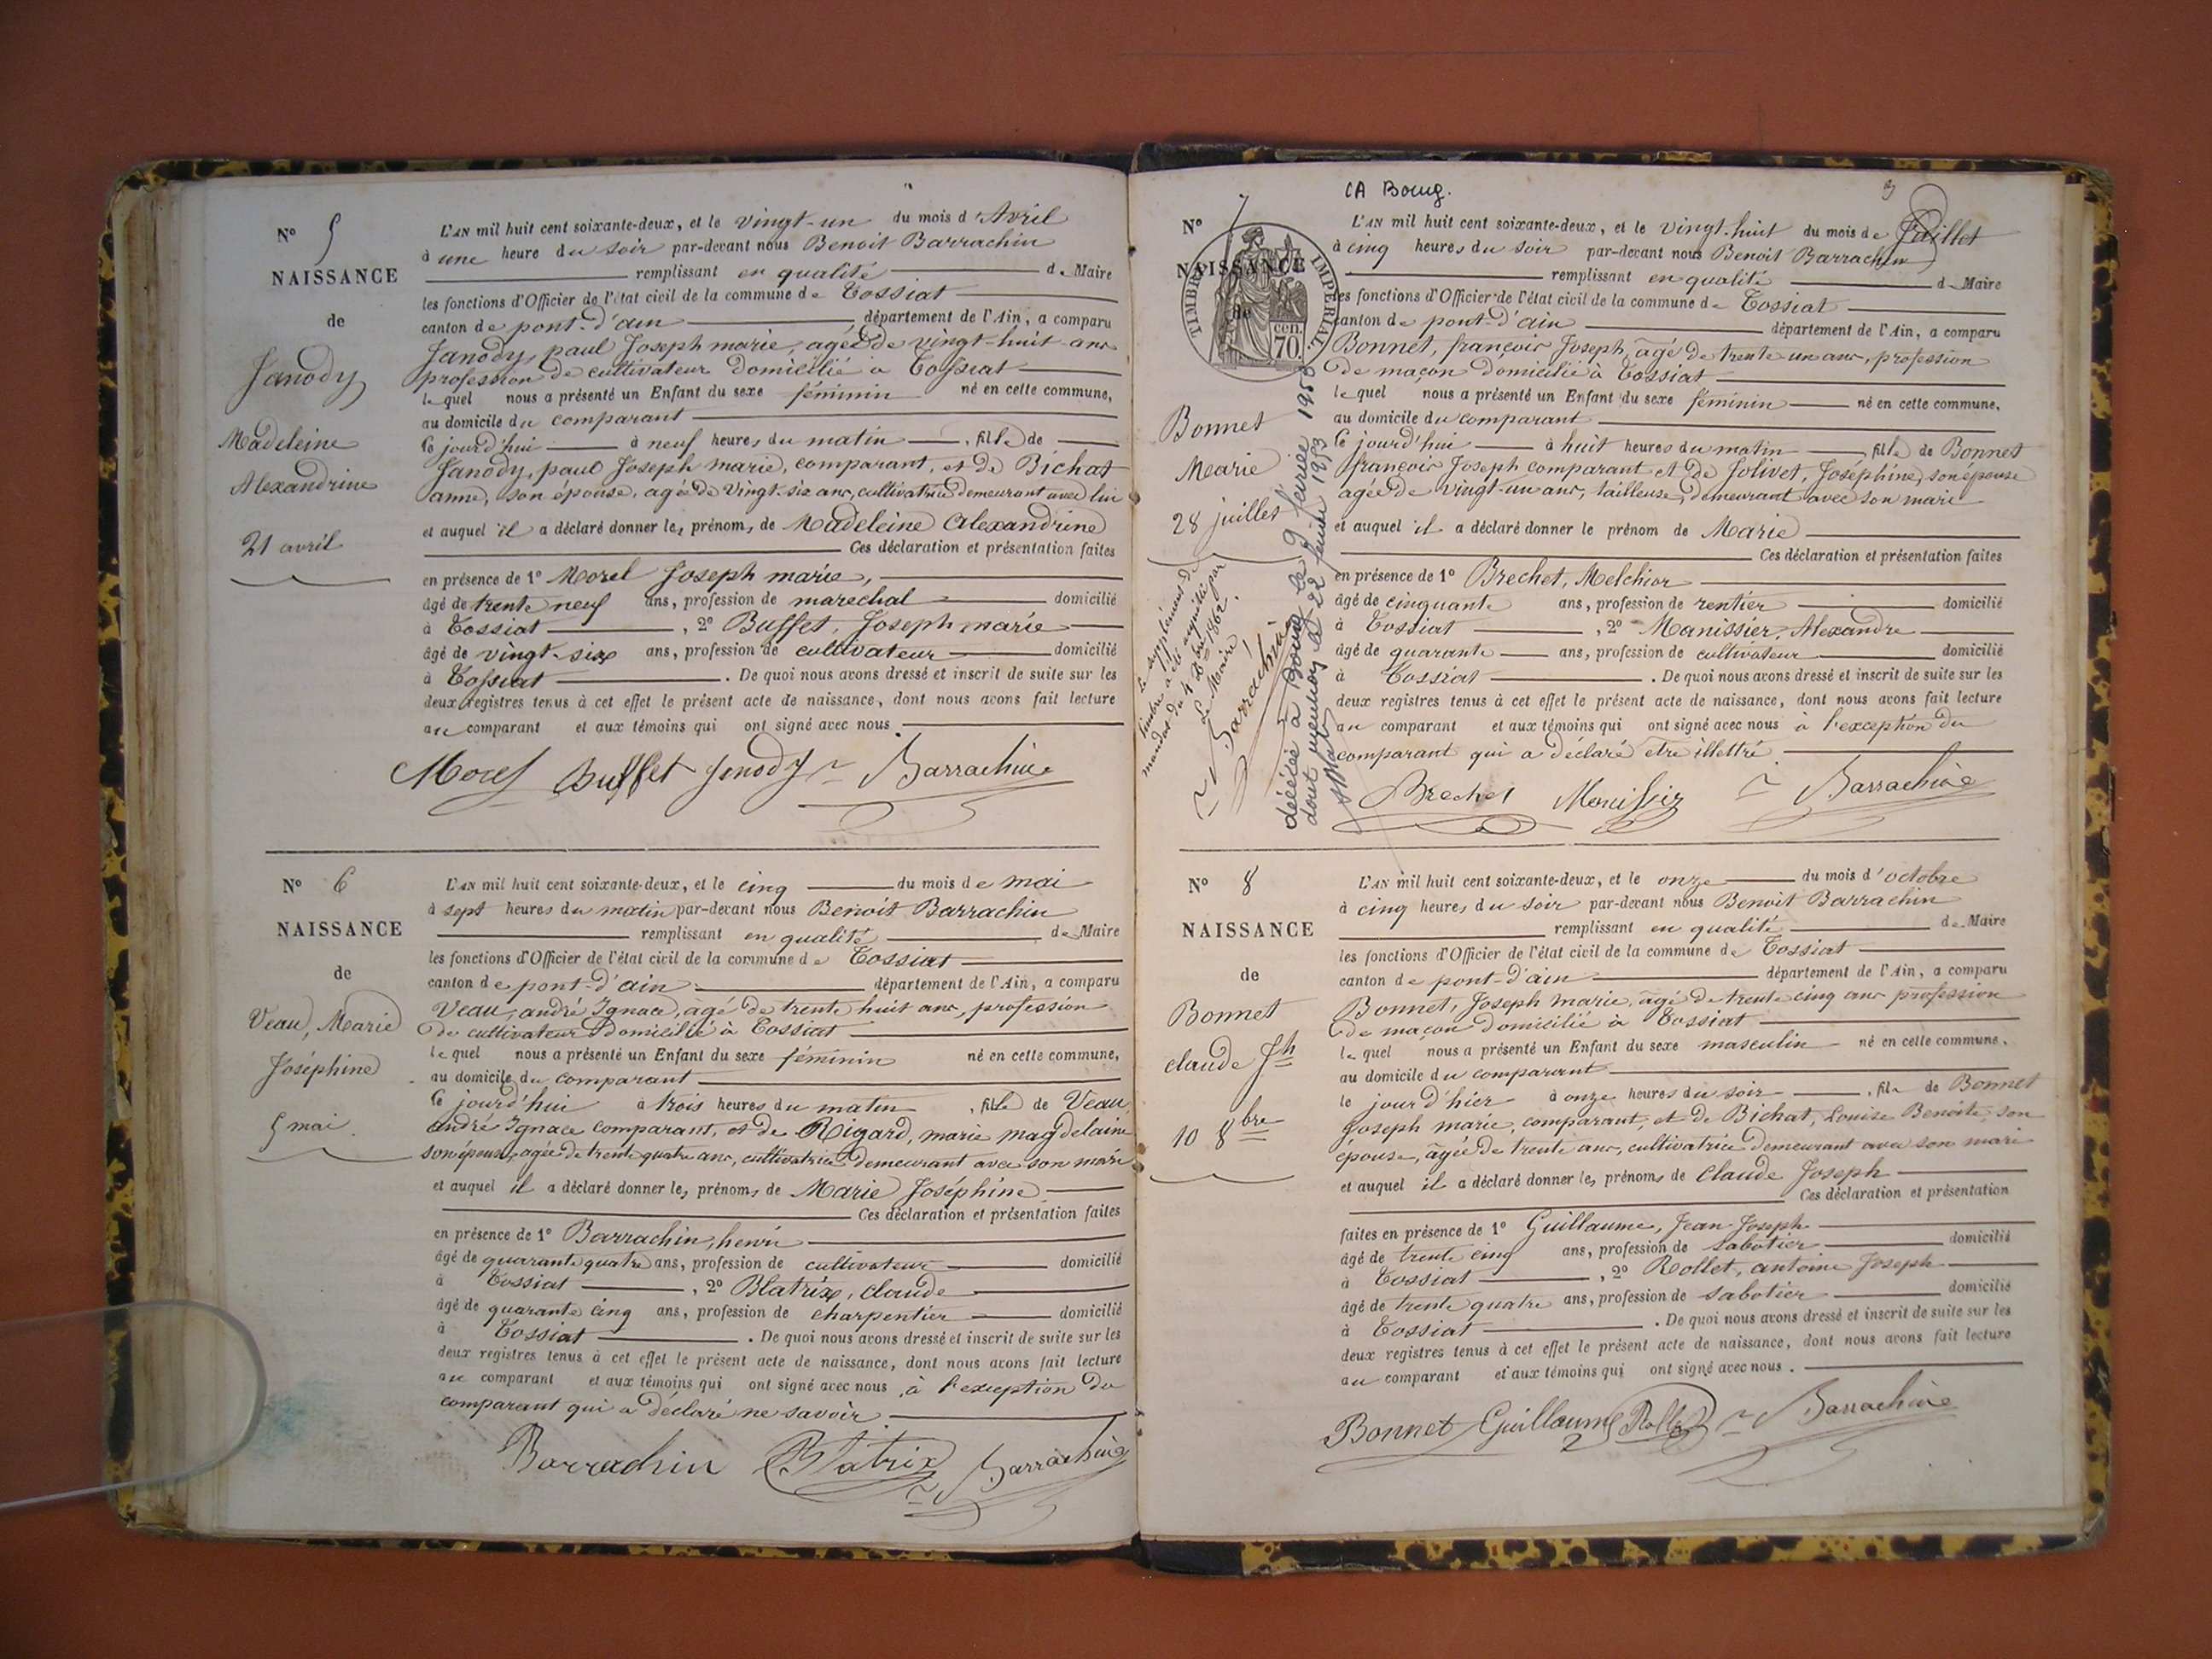 Nº 5
NAISSANCE
de
Janody
Madeleine
Alexandrine
21 avril
L'AN mil huit cent soixante-deux, et le vingt-un du mois d'Avril
à une heure du soir par-devant nous Benoit Barrachin
remplissant en qualité de Maire
les fonctions d'Officier de l'état civil de la commune de Tossiat
canton de pont-d'ain département de l'Ain, a comparu
Janody, paul Joseph marie, agé de vingt-huit ans
profession de cultivateur domicilié à Tossiat
lequel nous a présenté un Enfant du sexe féminin né en cette commune,
au domicile du comparant
Ce jourd'hui à neuf heures du matin, fille de
Janody, paul Joseph marie, comparant, et de Bichat
anne, son épouse, agée de vingt-six ans, cultivatrice demeurant avec lui
et auquel il a déclaré donner les prénoms de Madeleine Alexandrine
Ces déclaration et présentation faites
en présence de 1º Morel Joseph marie,
âgé de trente neuf ans, profession de marechal domicilié
à Tossiat, 2º Buffet, Joseph marie
âgé de vingt-six ans, profession de cultivateur domicilié
à Tossiat. De quoi nous avons dressé et inscrit de suite sur les
deux registres tenus à cet effet le présent acte de naissance, dont nous avons fait lecture
au comparant et aux témoins qui ont signé avec nous.
Morel Buffet Janody Barrachin
Nº 6
NAISSANCE
de
Veau, Marie
Joséphine
5 mai
L'AN mil huit cent soixante-deux, et le cinq du mois de mai
à sept heures du matin par-devant nous Benoit Barrachin
remplissant en qualité de Maire
les fonctions d'Officier de l'état civil de la commune de Tossiat
canton de pont-d'ain département de l'Ain, a comparu
Veau, andré Ignace, âgé de trente huit ans, profession
de cultivateur domicilié à Tossiat
lequel nous a présenté un Enfant du sexe féminin né en cette commune,
au domicile du comparant
Ce jourd'hui à trois heures du matin, fille de Veau
andré Ignace comparant, et de Rigard, marie magdelaine
son épouse, agée de trente quatre ans, cultivatrice demeurant avec son mari
et auquel il a déclaré donner les prénoms de Marie Joséphine
Ces déclaration et présentation faites
en présence de 1º Barrachin, henri
âgé de quarante quatre ans, profession de cultivateur domicilié
à Tossiat, 2º Blatrix, claude
âgé de quarante cinq ans, profession de charpentier domicilié
à Tossiat. De quoi nous avons dressé et inscrit de suite sur les
deux registres tenus à cet effet le présent acte de naissance, dont nous avons fait lecture
au comparant et aux témoins qui ont signé avec nous, à l'exception du
comparant qui a déclaré ne savoir
Barrachin Blatrix Barrachin
CA Bourg.
Nº 7
NAISSANCE
de
TIMBRE IMPERIAL
70 cen.
Bonnet
Marie
28 juillet
Le supplément de
timbre a été acquitté par
mandat du 4 Xbre 1862.
Le Maire
Barrachin
décédée à Bourg le 9 février 1953
dont mention le 22 février 1953
L'AN mil huit cent soixante-deux, et le vingt-huit du mois de Juillet
à cinq heures du soir par-devant nous Benoit Barrachin
remplissant en qualité de Maire
les fonctions d'Officier de l'état civil de la commune de Tossiat
canton de pont-d'ain département de l'Ain, a comparu
Bonnet, françois Joseph, âgé de trente un ans, profession
de maçon domicilié à Tossiat
lequel nous a présenté un Enfant du sexe féminin né en cette commune,
au domicile du comparant
Ce jourd'hui à huit heures du matin, fille de Bonnet
françois Joseph comparant et de Jolivet, Joséphine, son épouse
agée de vingt-un ans, tailleuse, demeurant avec son mari
et auquel il a déclaré donner le prénom de Marie
Ces déclaration et présentation faites
en présence de 1º Brechet, Melchior
âgé de cinquante ans, profession de rentier domicilié
à Tossiat, 2º Manissier, Alexandre
âgé de quarante ans, profession de cultivateur domicilié
à Tossiat. De quoi nous avons dressé et inscrit de suite sur les
deux registres tenus à cet effet le présent acte de naissance, dont nous avons fait lecture
au comparant et aux témoins qui ont signé avec nous à l'exception du
comparant qui a déclaré etre illettré.
Brechet Manissier Barrachin
Nº 8
NAISSANCE
de
Bonnet
claude Jh
10 8bre
L'AN mil huit cent soixante-deux, et le onze du mois d'octobre
à cinq heures du soir par-devant nous Benoit Barrachin
remplissant en qualité de Maire
les fonctions d'Officier de l'état civil de la commune de Tossiat
canton de pont-d'ain département de l'Ain, a comparu
Bonnet, Joseph marie, âgé de trente cinq ans profession
de maçon domicilié à Tossiat
lequel nous a présenté un Enfant du sexe masculin né en cette commune,
au domicile du comparant
le jour d'hier à onze heures du soir, fils de Bonnet
Joseph marie, comparant, et de Bichat, Louise Benoite, son
épouse, âgée de trente ans, cultivatrice demeurant avec son mari
et auquel il a déclaré donner les prénoms de Claude Joseph
Ces déclaration et présentation
faites en présence de 1º Guillaume, Jean Joseph
âgé de trente cinq ans, profession de sabotier domicilié
à Tossiat, 2º Rollet, antoine Joseph
âgé de trente quatre ans, profession de sabotier domicilié
à Tossiat. De quoi nous avons dressé et inscrit de suite sur les
deux registres tenus à cet effet le présent acte de naissance, dont nous avons fait lecture
au comparant et aux témoins qui ont signé avec nous.
Bonnet Guillaume Rollet Barrachin